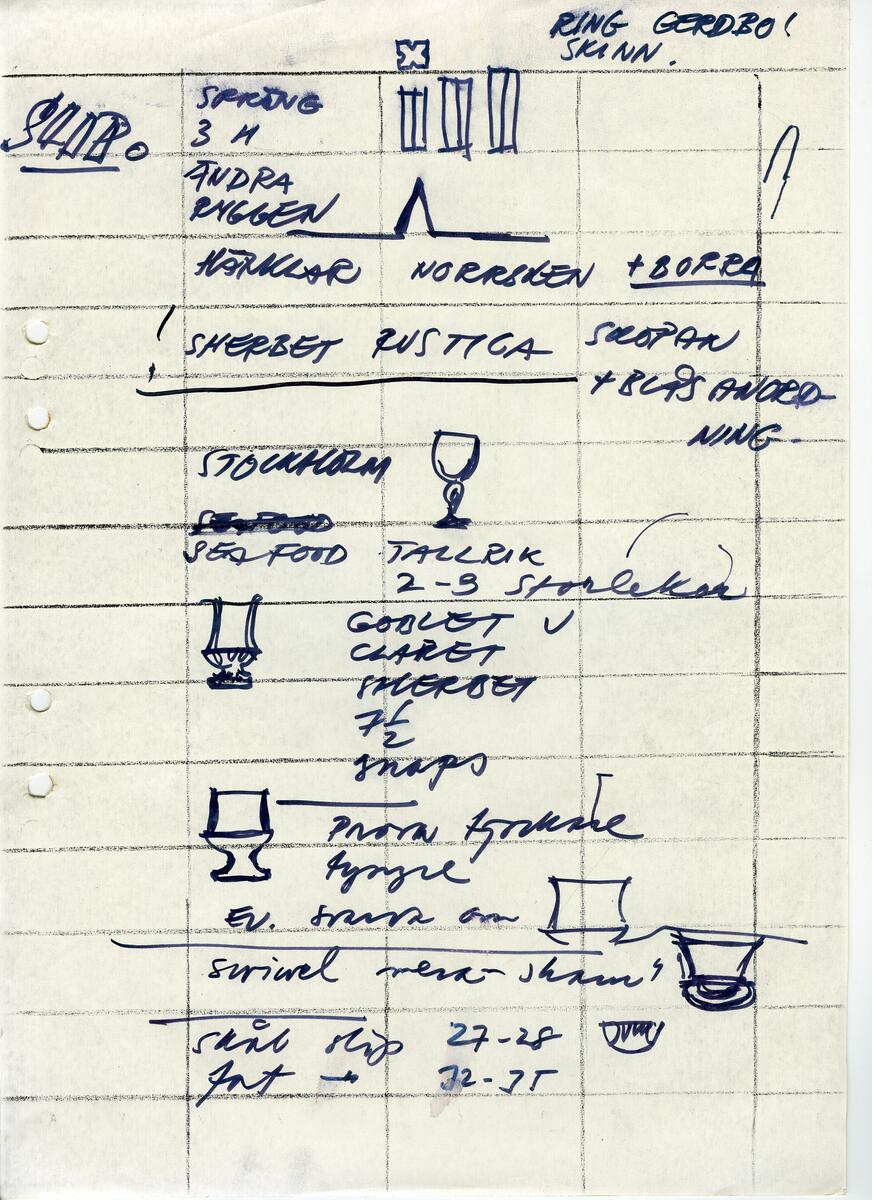 RING GERDBO!
SKINN.
SLIP.
SPRÄNG
3 H
ÄNDRA
RYGGEN
NORRSKEN + BORRA
SHERBET RUSTICA SKOPAN
+ BLÅSANORD-
NING.
STOCKHOLM
SEAFOOD
SEAFOOD TALLRIK
2-3 Storlekar
GOBLET
CLARET
SHERBET
7 1/2
snaps
Prova tjockare
tyngre
EV. om
swivel
skål slip 27-28
fat -"- 32-35